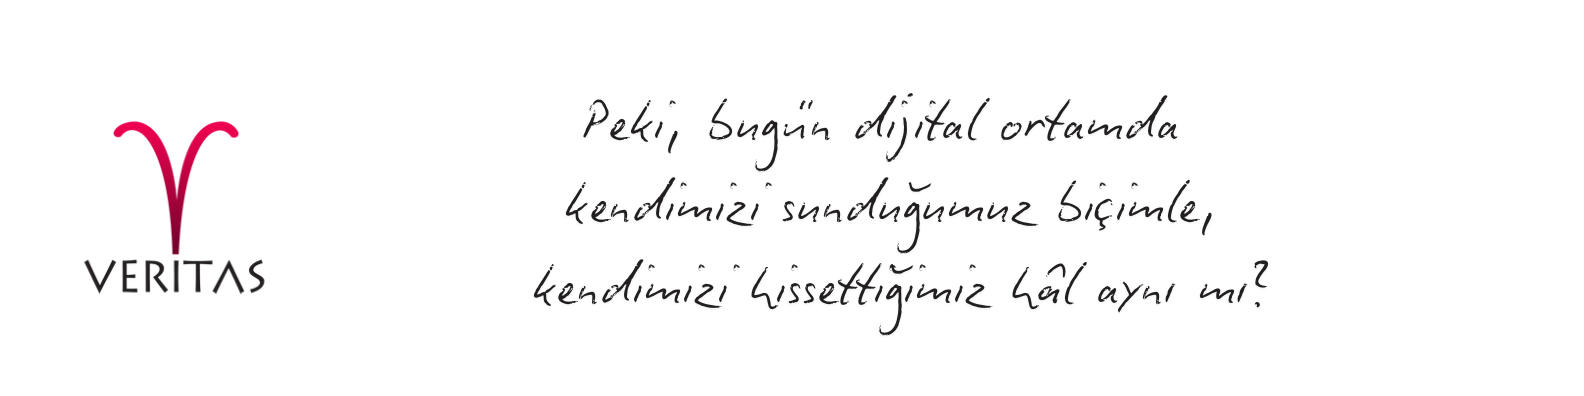 VERİTAS
Peki, bugün dijital ortamda
kendimizi sunduğumuz biçimle,
kendimizi hissettiğimiz hâl aynı mı?